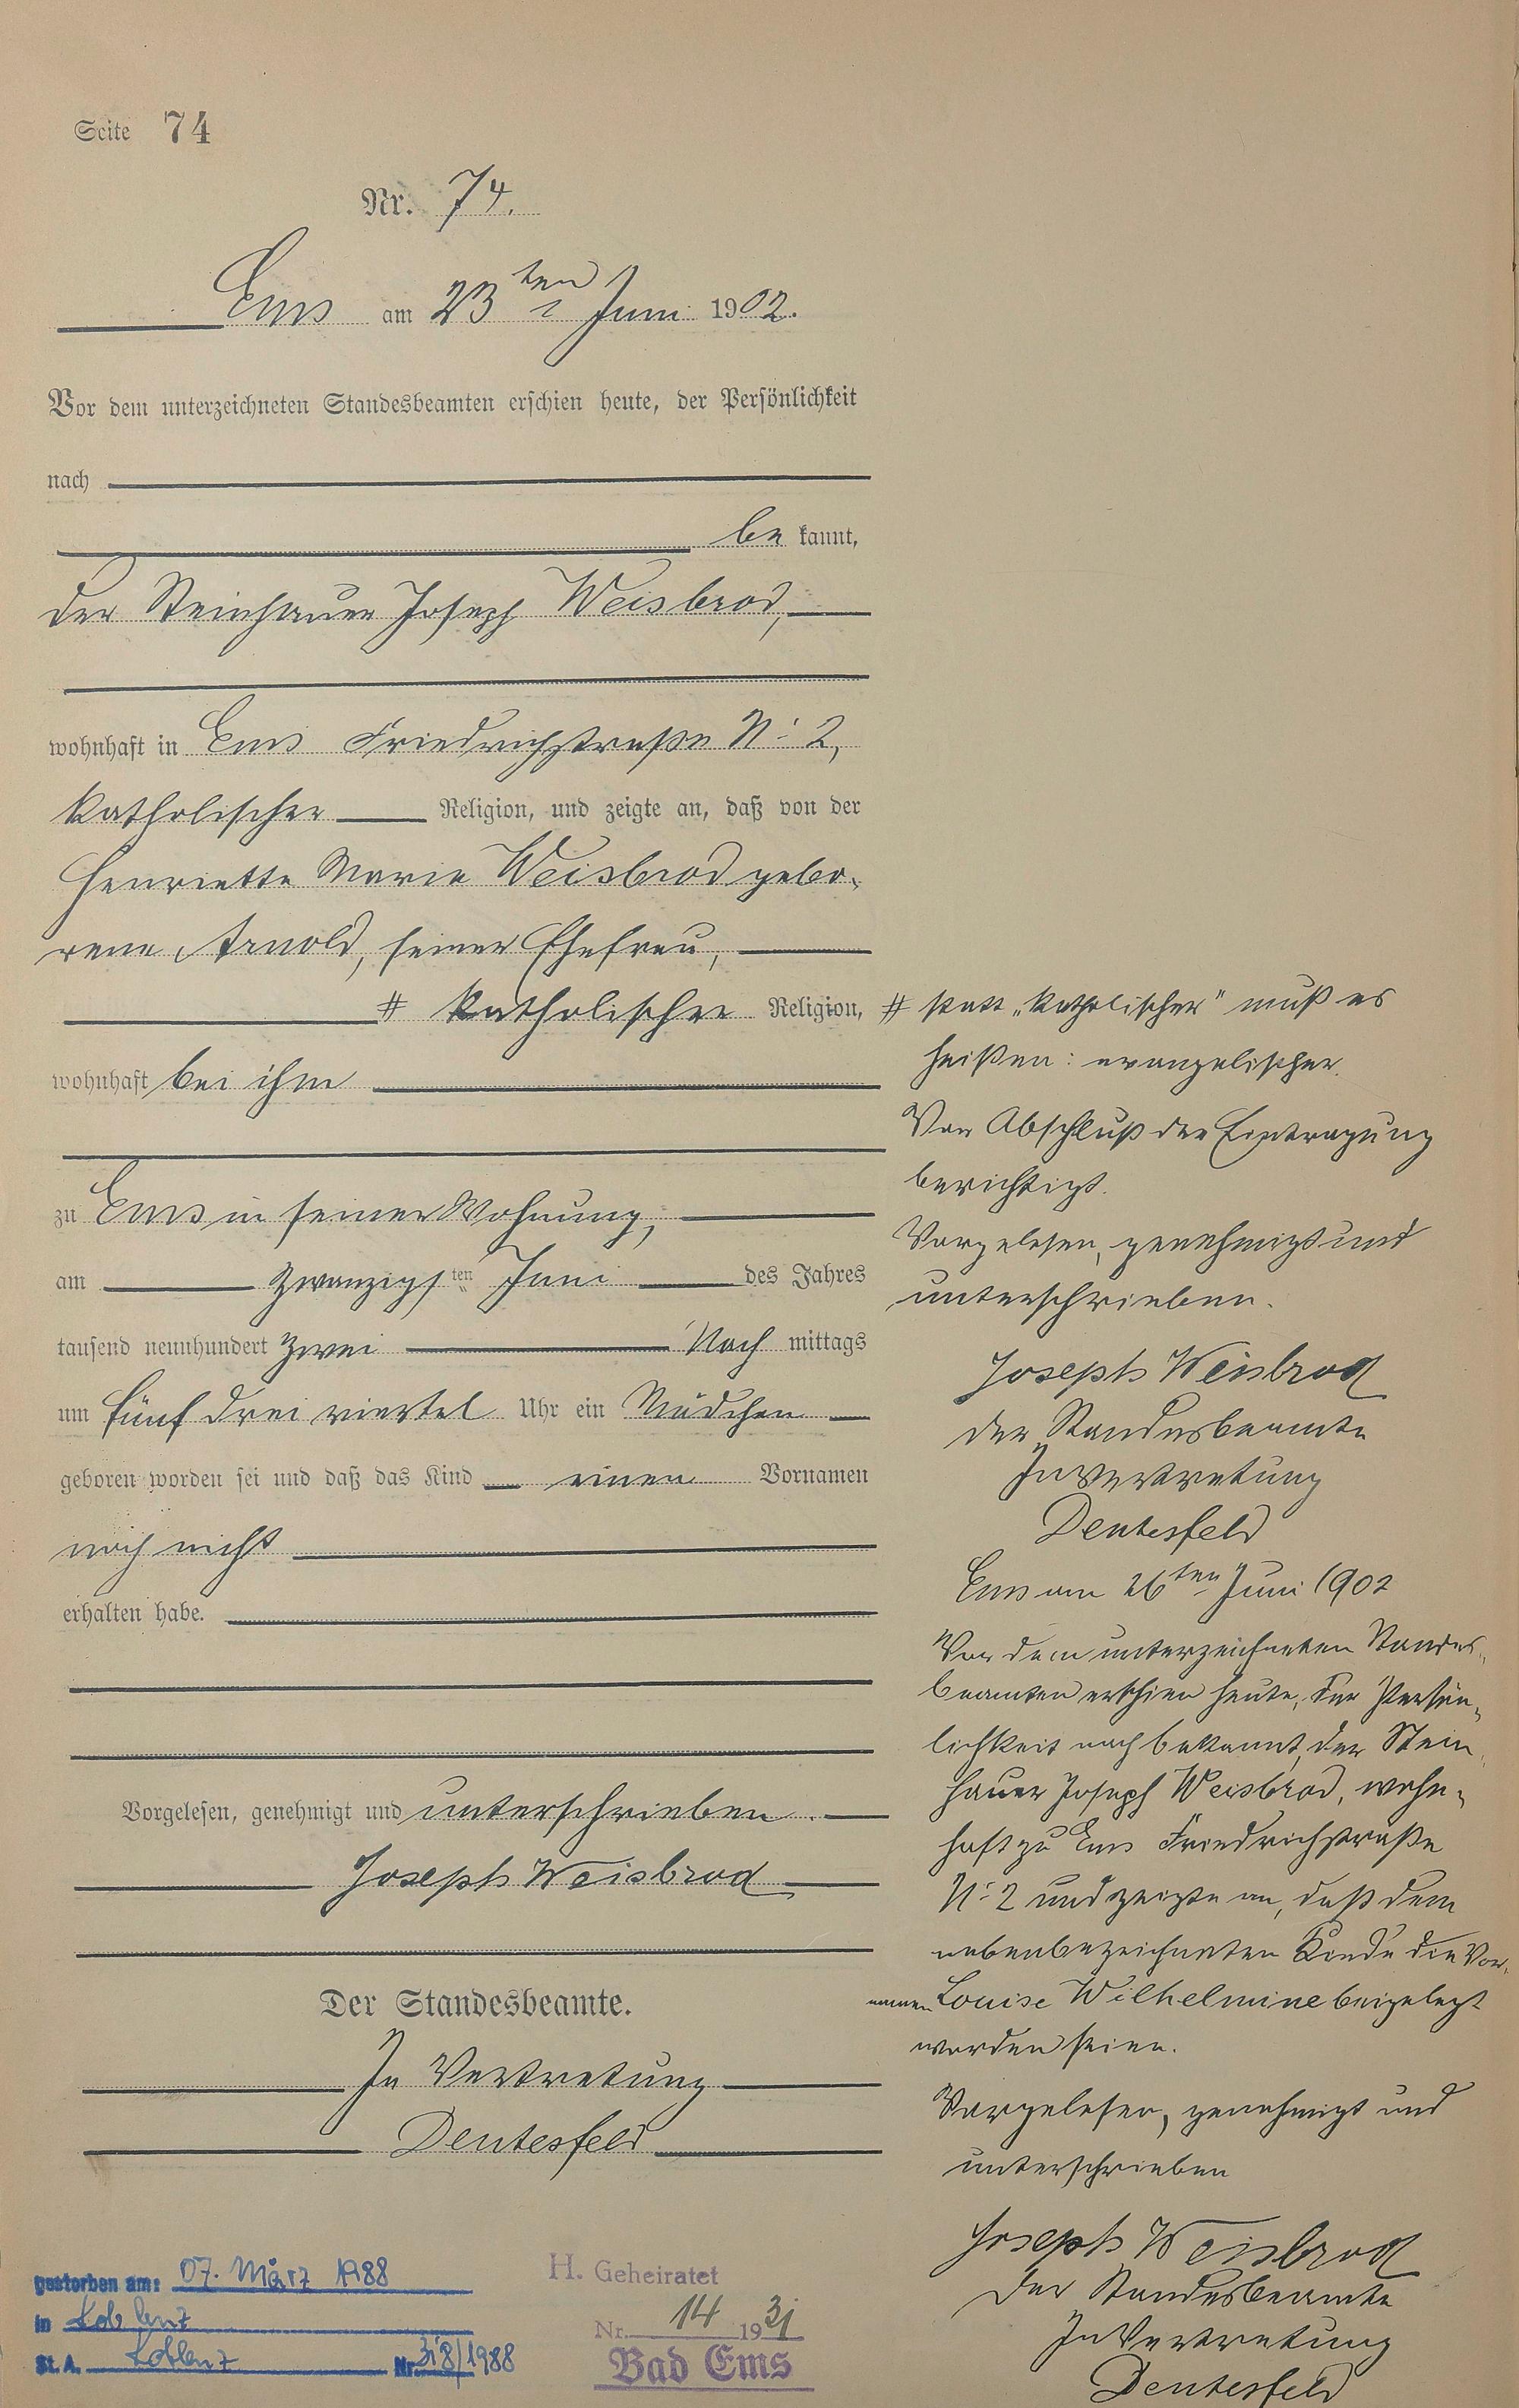 Seite 74
Nr. 74.
Ems am 23ten Juni 1902.
Vor dem unterzeichneten Standesbeamten erschien heute, der Persönlichkeit
nach
be kannt,
der Steinhauer Joseph Weisbrod,
wohnhaft in Ems Friedrichstraße No 2,
katholischer Religion, und zeigte an, daß von der
Henriette Maria Weisbrod gebo-
rene Arnold, seiner Ehefrau,
# katholischer Religion,
wohnhaft bei ihm
zu Ems in seiner Wohnung,
am zwanzigsten Juni des Jahres
tausend neunhundert zwei Nach mittags
um fünf drei viertel Uhr ein Mädchen
geboren worden sei und daß das Kind einen Vornamen
noch nicht
erhalten habe.
Vorgelesen, genehmigt und unterschrieben.
Joseph Weisbrod
Der Standesbeamte.
In Vertretung
# statt „katholischer" muß es
heißen: evangelischer.
Vor Abschluß der Eintragung
berichtigt.
Vorgelesen, genehmigt und
unterschrieben.
Joseph Weisbrod
Der Standesbeamte
In Vertretung
Ems am 26ten Juni 1902
Vor dem unterzeichneten Standes-
beamten erschien heute, der Persön-
lichkeit nach bekannt, der Stein-
hauer Joseph Weisbrod, wohn-
haft zu Ems Friedrichstraße
No 2 und zeigte an, daß dem
nebenbezeichneten Kinde die Vor-
namen Louise Wilhelmine beigelegt
worden seien.
Vorgelesen, genehmigt und
unterschrieben
Joseph Weisbrod
Der Standesbeamte
In Vertretung
gestorben am: 07. März 1988
in Koblenz
St. A. Koblenz Nr. 318/1988
H. Geheiratet
Nr. 14 1931
Bad Ems